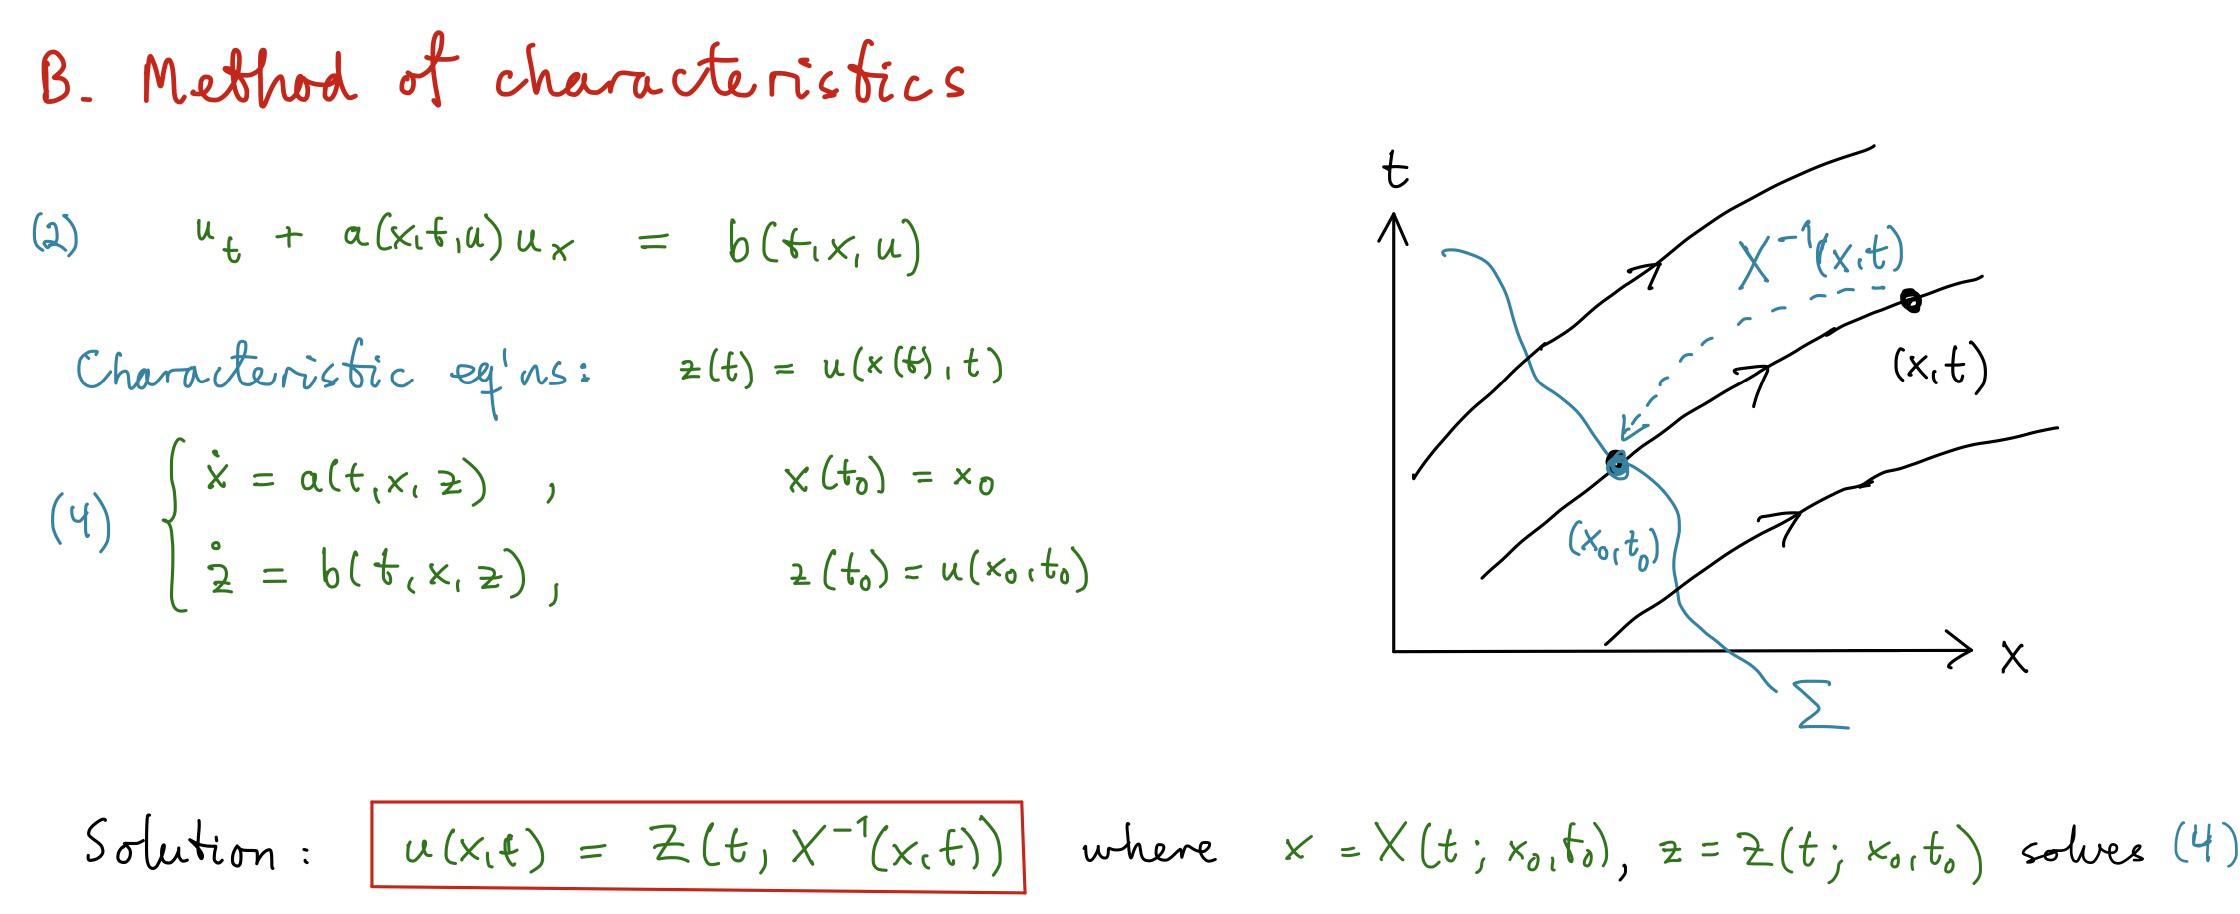 B. Method of characteristics
(2) u_t + a(x,t,u) u_x = b(t,x,u)
Characteristic eq'ns: z(t) = u(x(t),t)
(4) { ẋ = a(t,x,z) , x(t_0) = x_0
ż = b(t,x,z) , z(t_0) = u(x_0,t_0)
t
X^{-1}(x,t)
(x,t)
(x_0,t_0)
x
Σ
Solution: u(x,t) = Z(t; X^{-1}(x,t)) where x = X(t; x_0,t_0), z = Z(t; x_0,t_0) solves (4)